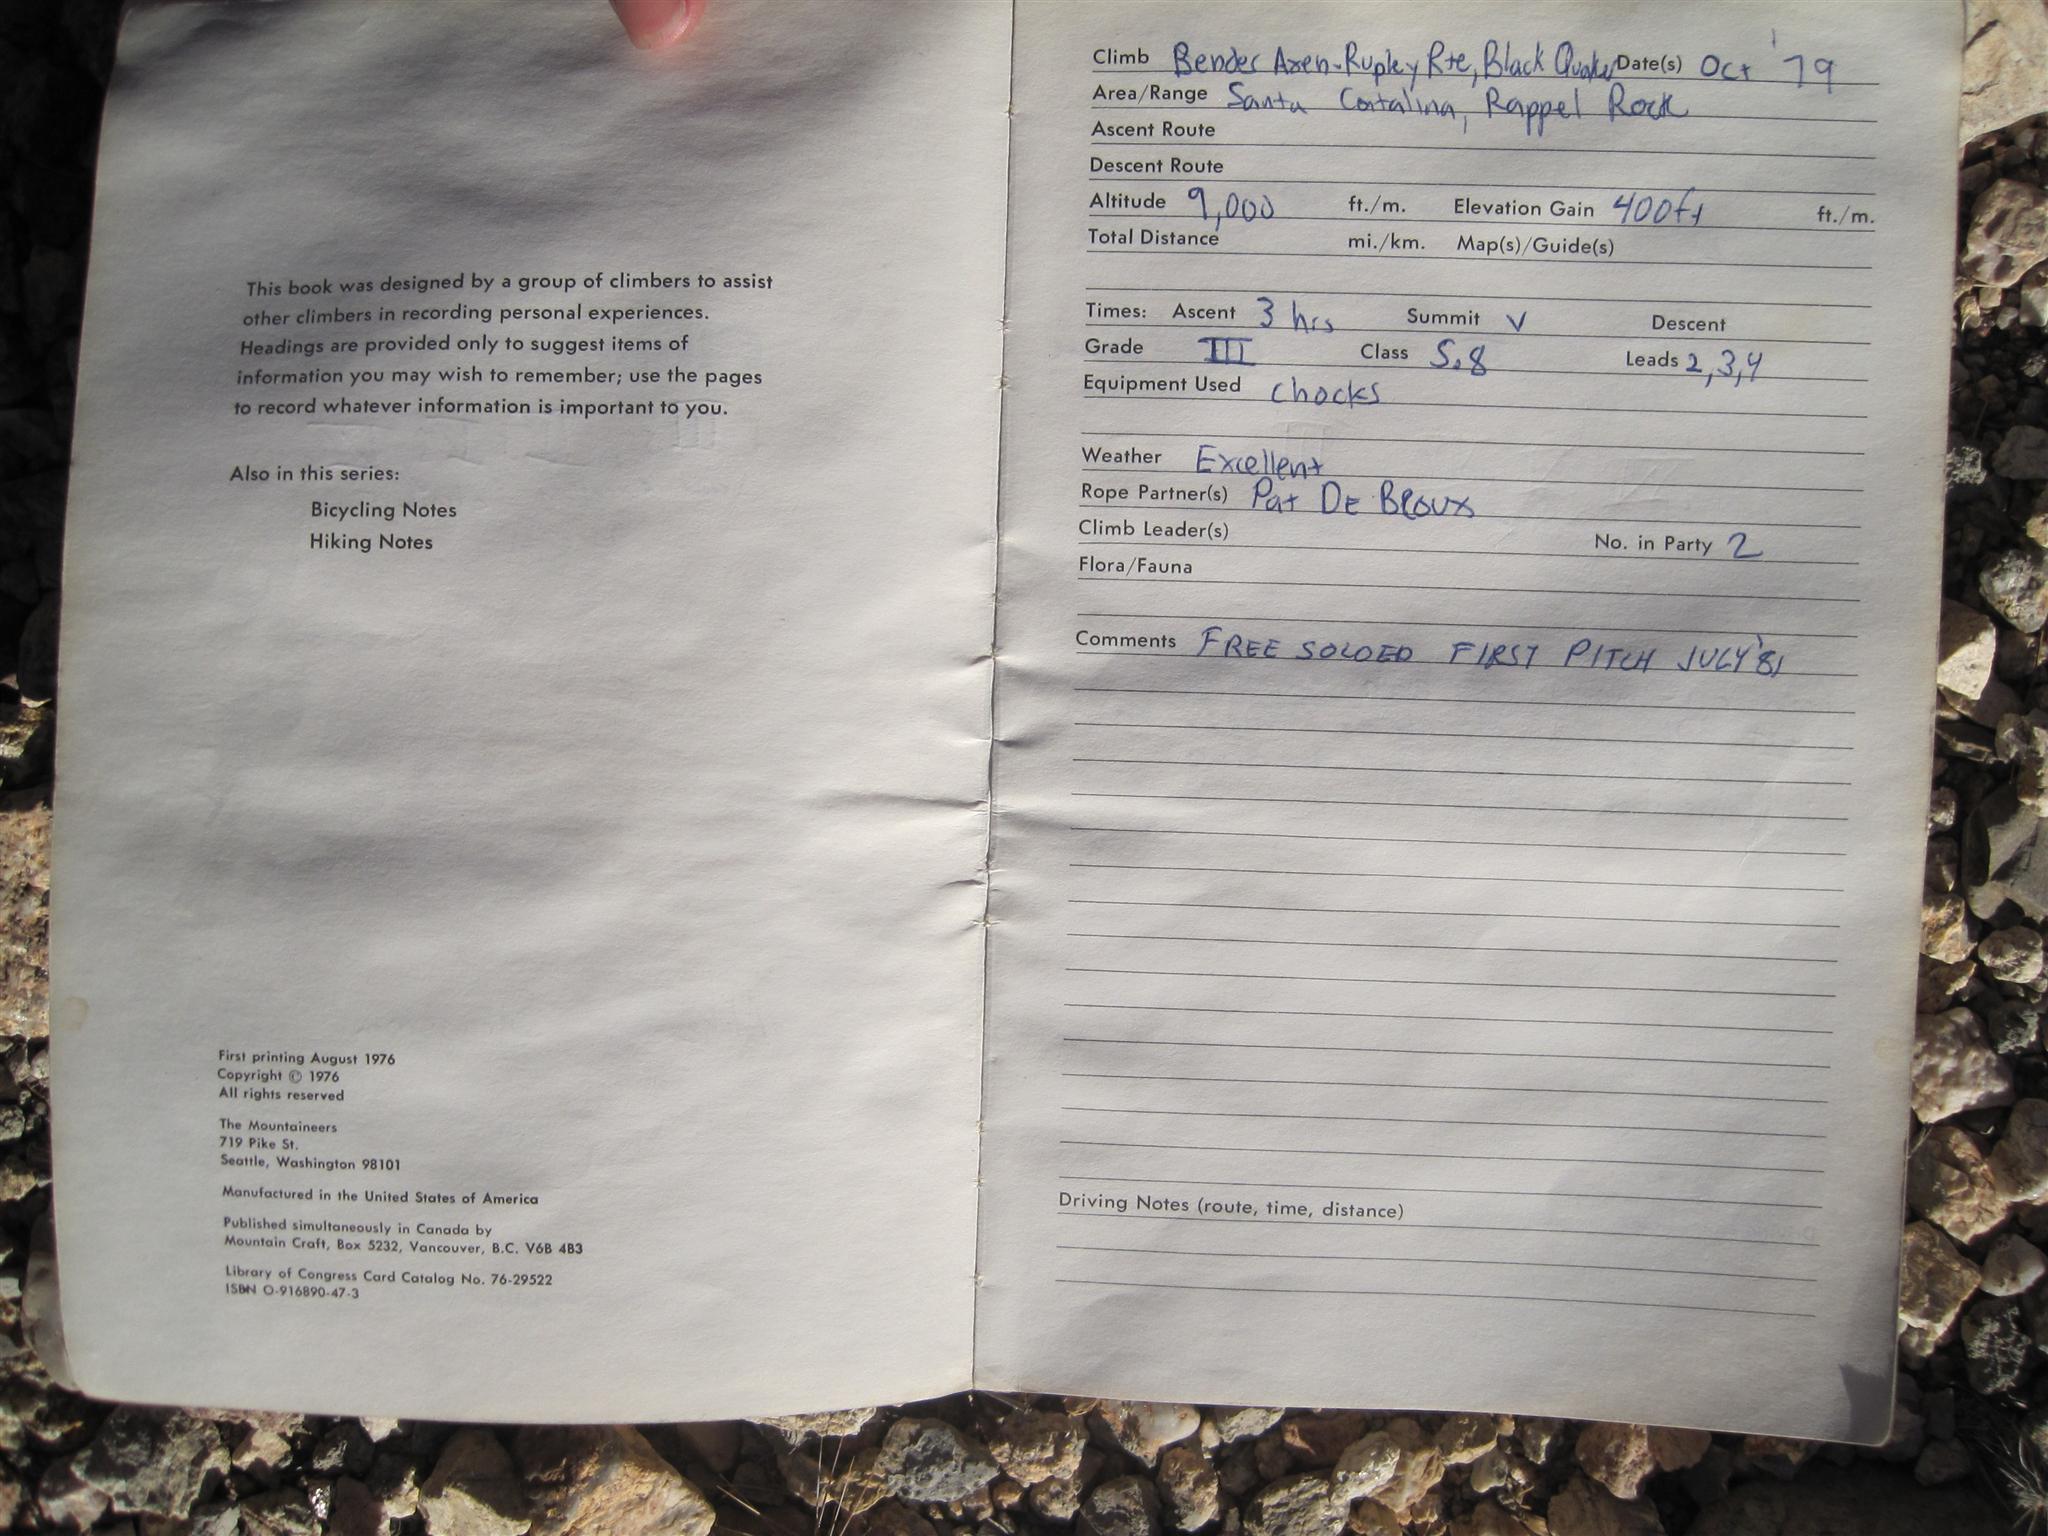 This book was designed by a group of climbers to assist
other climbers in recording personal experiences.
Headings are provided only to suggest items of
information you may wish to remember; use the pages
to record whatever information is important to you.
Also in this series:
Bicycling Notes
Hiking Notes
First printing August 1976
Copyright © 1976
All rights reserved
The Mountaineers
719 Pike St.
Seattle, Washington 98101
Manufactured in the United States of America
Published simultaneously in Canada by
Mountain Craft, Box 5232, Vancouver, B.C. V6B 4B3
Library of Congress Card Catalog No. 76-29522
ISBN 0-916890-47-3
Climb Bender Axen-Rupley Rte, Black Quaker Date(s) Oct '79
Area/Range Santa Catalina, Rappel Rock
Ascent Route
Descent Route
Altitude 9,000 ft./m. Elevation Gain 400ft ft./m.
Total Distance mi./km. Map(s)/Guide(s)
Times: Ascent 3 hrs Summit √ Descent
Grade III Class 5.8 Leads 2,3,4
Equipment Used chocks
Weather Excellent
Rope Partner(s) Pat DE BROUX
Climb Leader(s) No. in Party 2
Flora/Fauna
Comments FREE SOLOED FIRST PITCH JULY '81
Driving Notes (route, time, distance)